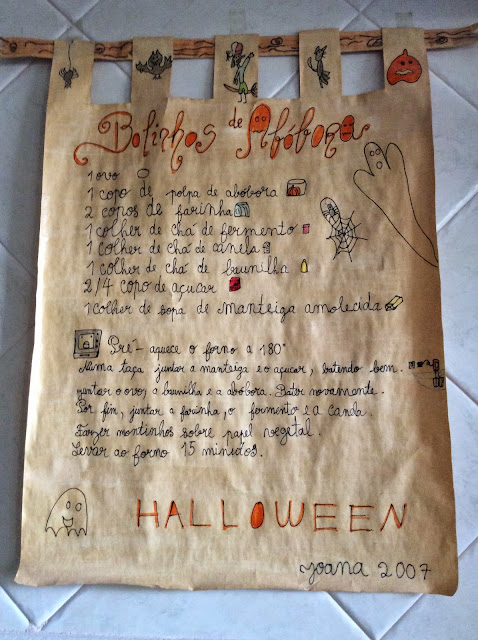 Bolinhos de Abóbora
1 ovo
1 copo de polpa de abóbora
2 copos de farinha
1 colher de chá de fermento
1 colher de chá de canela
1 colher de chá de baunilha
2/4 copo de açucar
1 colher de sopa de manteiga amolecida
Pré-aquece o forno a 180°
Numa taça juntar a manteiga e o açucar, batendo bem.
juntar o ovo, a baunilha e a abóbora. Bater novamente.
Por fim, juntar a farinha, o fermento e a canela.
Fazer montinhos sobre papel vegetal.
Levar ao forno 15 minutos.
HALLOWEEN
Joana 2007